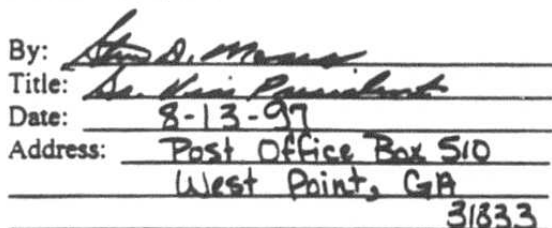 By: D.
Title: Sr. Vice President
Date: 8-13-97
Address: Post Office Box 510
West Point, GA
31833